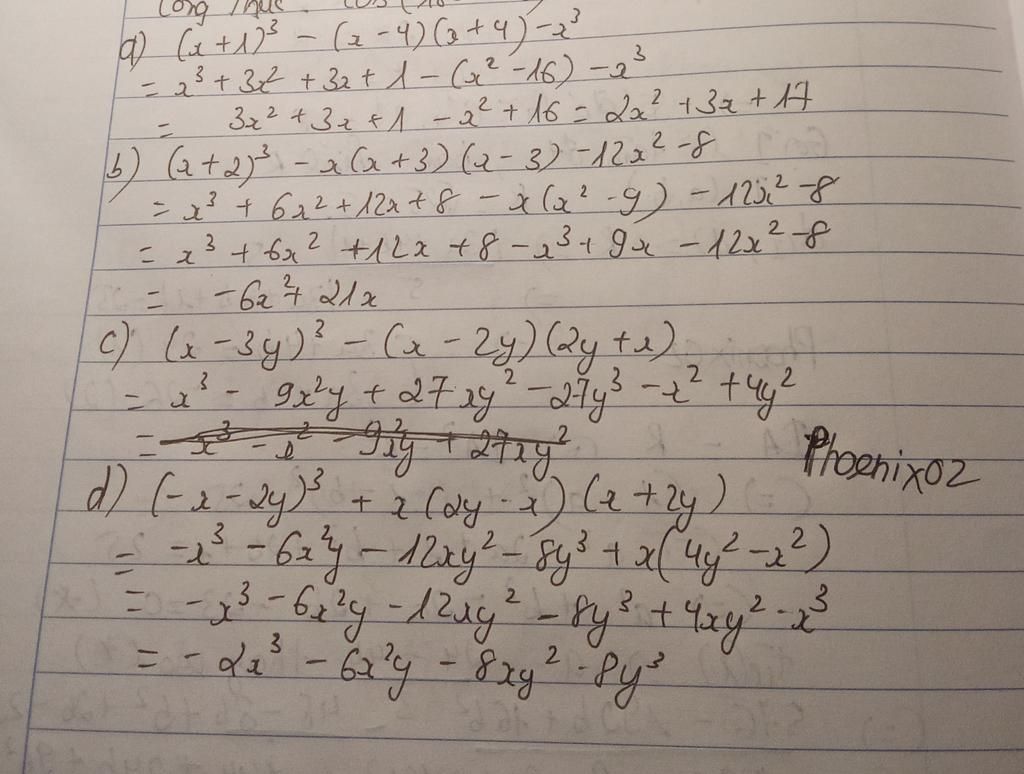 Công thức:
a) (x+1)³ - (x-4)(x+4) - x³
= x³ + 3x² + 3x + 1 - (x² - 16) - x³
= 3x² + 3x + 1 - x² + 16 = 2x² + 3x + 17
b) (x+2)³ - x(x+3)(x-3) - 12x² - 8
= x³ + 6x² + 12x + 8 - x(x² - 9) - 12x² - 8
= x³ + 6x² + 12x + 8 - x³ + 9x - 12x² - 8
= -6x² + 21x
c) (x - 3y)³ - (x - 2y)(2y + x)
= x³ - 9x²y + 27xy² - 27y³ - x² + 4y²
= x³ - x² - 9x²y + 27xy²
Phoenix02
d) (-x - 2y)³ + x(2y - x)(x + 2y)
= -x³ - 6x²y - 12xy² - 8y³ + x(4y² - x²)
= -x³ - 6x²y - 12xy² - 8y³ + 4xy² - x³
= -2x³ - 6x²y - 8xy² - 8y³